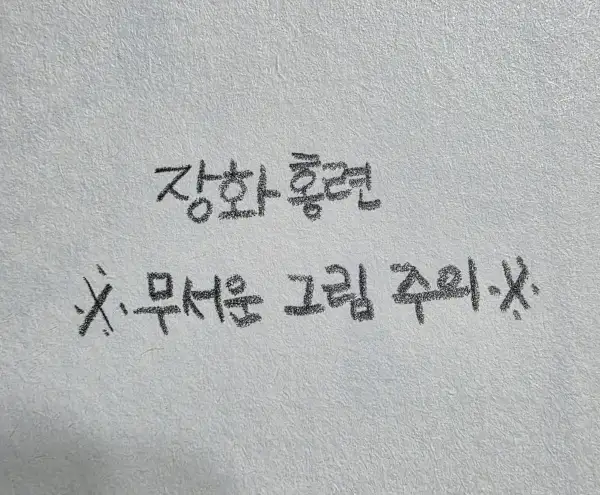 장화홍련
※ 무서운 그림 주의 ※